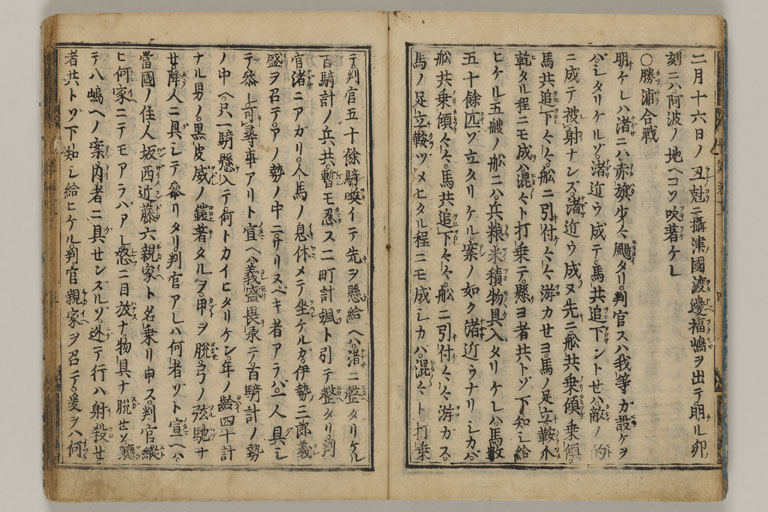 二月十六日ノ丑尅ニ攝津國渡邊福嶋ヲ出テ明ル卯
刻ニハ阿波ノ地ヘコソ吹著ケレ
○勝浦合戰
明ケレハ渚ニハ赤旗少々颺タリ判官スハ我等カ設ケヲ
ハシタリケルソ渚近ウ成テ馬共追下ントセハ敵ノ的
ニ成テ被射ナンス渚近ウ成ヌ先ニ舩共乗傾乗傾
馬共追下々々舩ニ引付々々游カセヨ馬ノ足立鞍爪
乾タル程ニモ成ハ混々ト打乗テ懸ヨ者共トソ下知シ給
ヒケル五艘ノ舩ニハ兵粮米積物具入タリケレハ馬數
五十餘匹ソ立タリケル案ノ如ク渚近ウナリシカハ
舩共乗傾々々馬共追下々々舩ニ引付々々游カス
馬ノ足立鞍ツメヒタル程ニモ成シカハ混々ト打乗
テ判官五十餘騎喚イテ先ヲ懸給ヘハ渚ニ整タリケル
百騎計ノ兵共暫モ忍ス二町計颯ト引テ整タリ判
官渚ニアカリ人馬ノ息休メテ坐ケルカ伊勢三郎義
盛ヲ召テアノ勢ノ中ニサリヌベキ者アラハ一人具シ
テ參レ可尋事アリト宣ヘハ義盛畏承テ百騎計ノ勢
ノ中ヘ只一騎懸入テ何トカイヒタリケン年ノ齢四十計
ナル男ノ黒皮威ノ鎧著タルヲ甲ヲ脱弓ノ弦馳サ
せ降人ニ具シテ參リタリ判官アレハ何者ソト宣ヘハ
當國ノ住人坂西近藤六親家ト名乗リ申ス判官縱
ヒ何家ニテモアラハアレ 目放ナ物具ナ脱せソ軈
テ八嶋ヘノ案内者ニ具せンスルソ迯テ行ハ射殺せ
者共トソ下知シ給ヒケル判官親家ヲ召テ爰ヲハ何